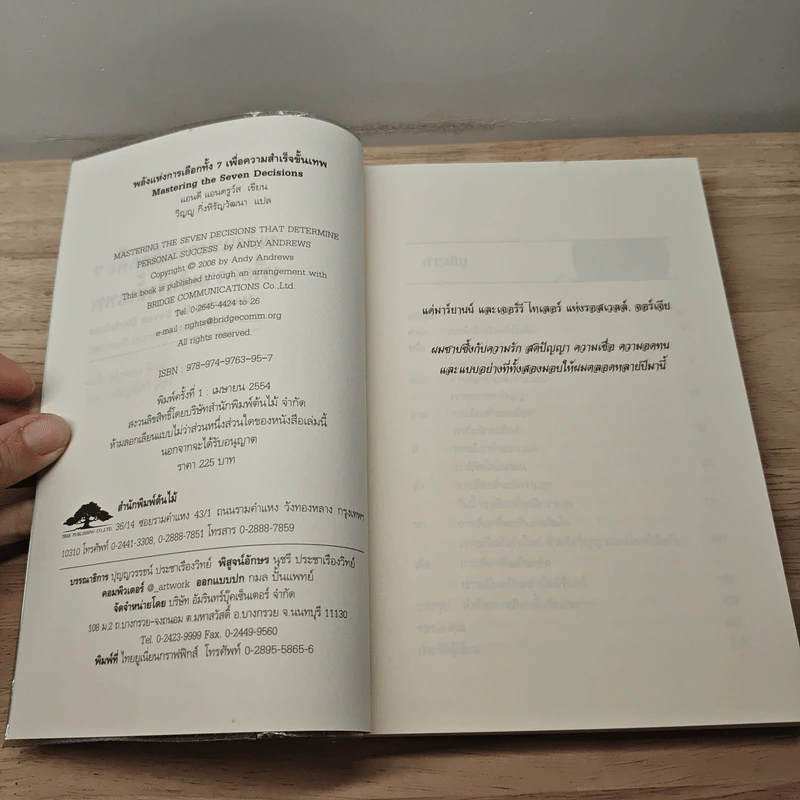 พลังแห่งการเลือกทั้ง 7 เพื่อความสำเร็จขั้นเทพ
Mastering the Seven Decisions
แอนดี แอนดรูว์ส เขียน
วิญญู กิ่งหิรัญวัฒนา แปล
MASTERING THE SEVEN DECISIONS THAT DETERMINE
PERSONAL SUCCESS by ANDY ANDREWS
Copyright © 2008 by Andy Andrews
This book is published through an arrangement with
BRIDGE COMMUNICATIONS Co.,Ltd.
Tel. 0-2645-4424 to 26
e-mail : rights@bridgecomm.org
All rights reserved.
ISBN : 978-974-9763-95-7
พิมพ์ครั้งที่ 1 : เมษายน 2554
สงวนลิขสิทธิ์โดยบริษัทสำนักพิมพ์ต้นไม้ จำกัด
ห้ามลอกเลียนแบบไม่ว่าส่วนหนึ่งส่วนใดของหนังสือเล่มนี้
นอกจากจะได้รับอนุญาต
ราคา 225 บาท
สำนักพิมพ์ต้นไม้
TREE PUBLISHING CO.,LTD.
36/14 ซอยรามคำแหง 43/1 ถนนรามคำแหง วังทองหลาง กรุงเทพฯ
10310 โทรศัพท์ 0-2441-3308, 0-2888-7851 โทรสาร 0-2888-7859
บรรณาธิการ ปุญญวรรธน์ ประชาเรืองวิทย์ พิสูจน์อักษร นุชรี ประชาเรืองวิทย์
คอมพิวเตอร์ @_artwork ออกแบบปก กมล ปั้นแพทย์
จัดจำหน่ายโดย บริษัท อัมรินทร์บุ๊คเซ็นเตอร์ จำกัด
108 ม.2 ถ.บางกรวย-จงถนอม ต.มหาสวัสดิ์ อ.บางกรวย จ.นนทบุรี 11130
Tel. 0-2423-9999 Fax. 0-2449-9560
พิมพ์ที่ ไทยยูเนี่ยนกราฟฟิกส์ โทรศัพท์ 0-2895-5865-6
แด่มาร์ยานน์ และเจอร์รี ไทเลอร์ แห่งรอสเวลล์, จอร์เจีย
ผมซาบซึ้งกับความรัก สติปัญญา ความเชื่อ ความอดทน
และแบบอย่างที่ทั้งสองมอบให้ผมตลอดหลายปีมานี้